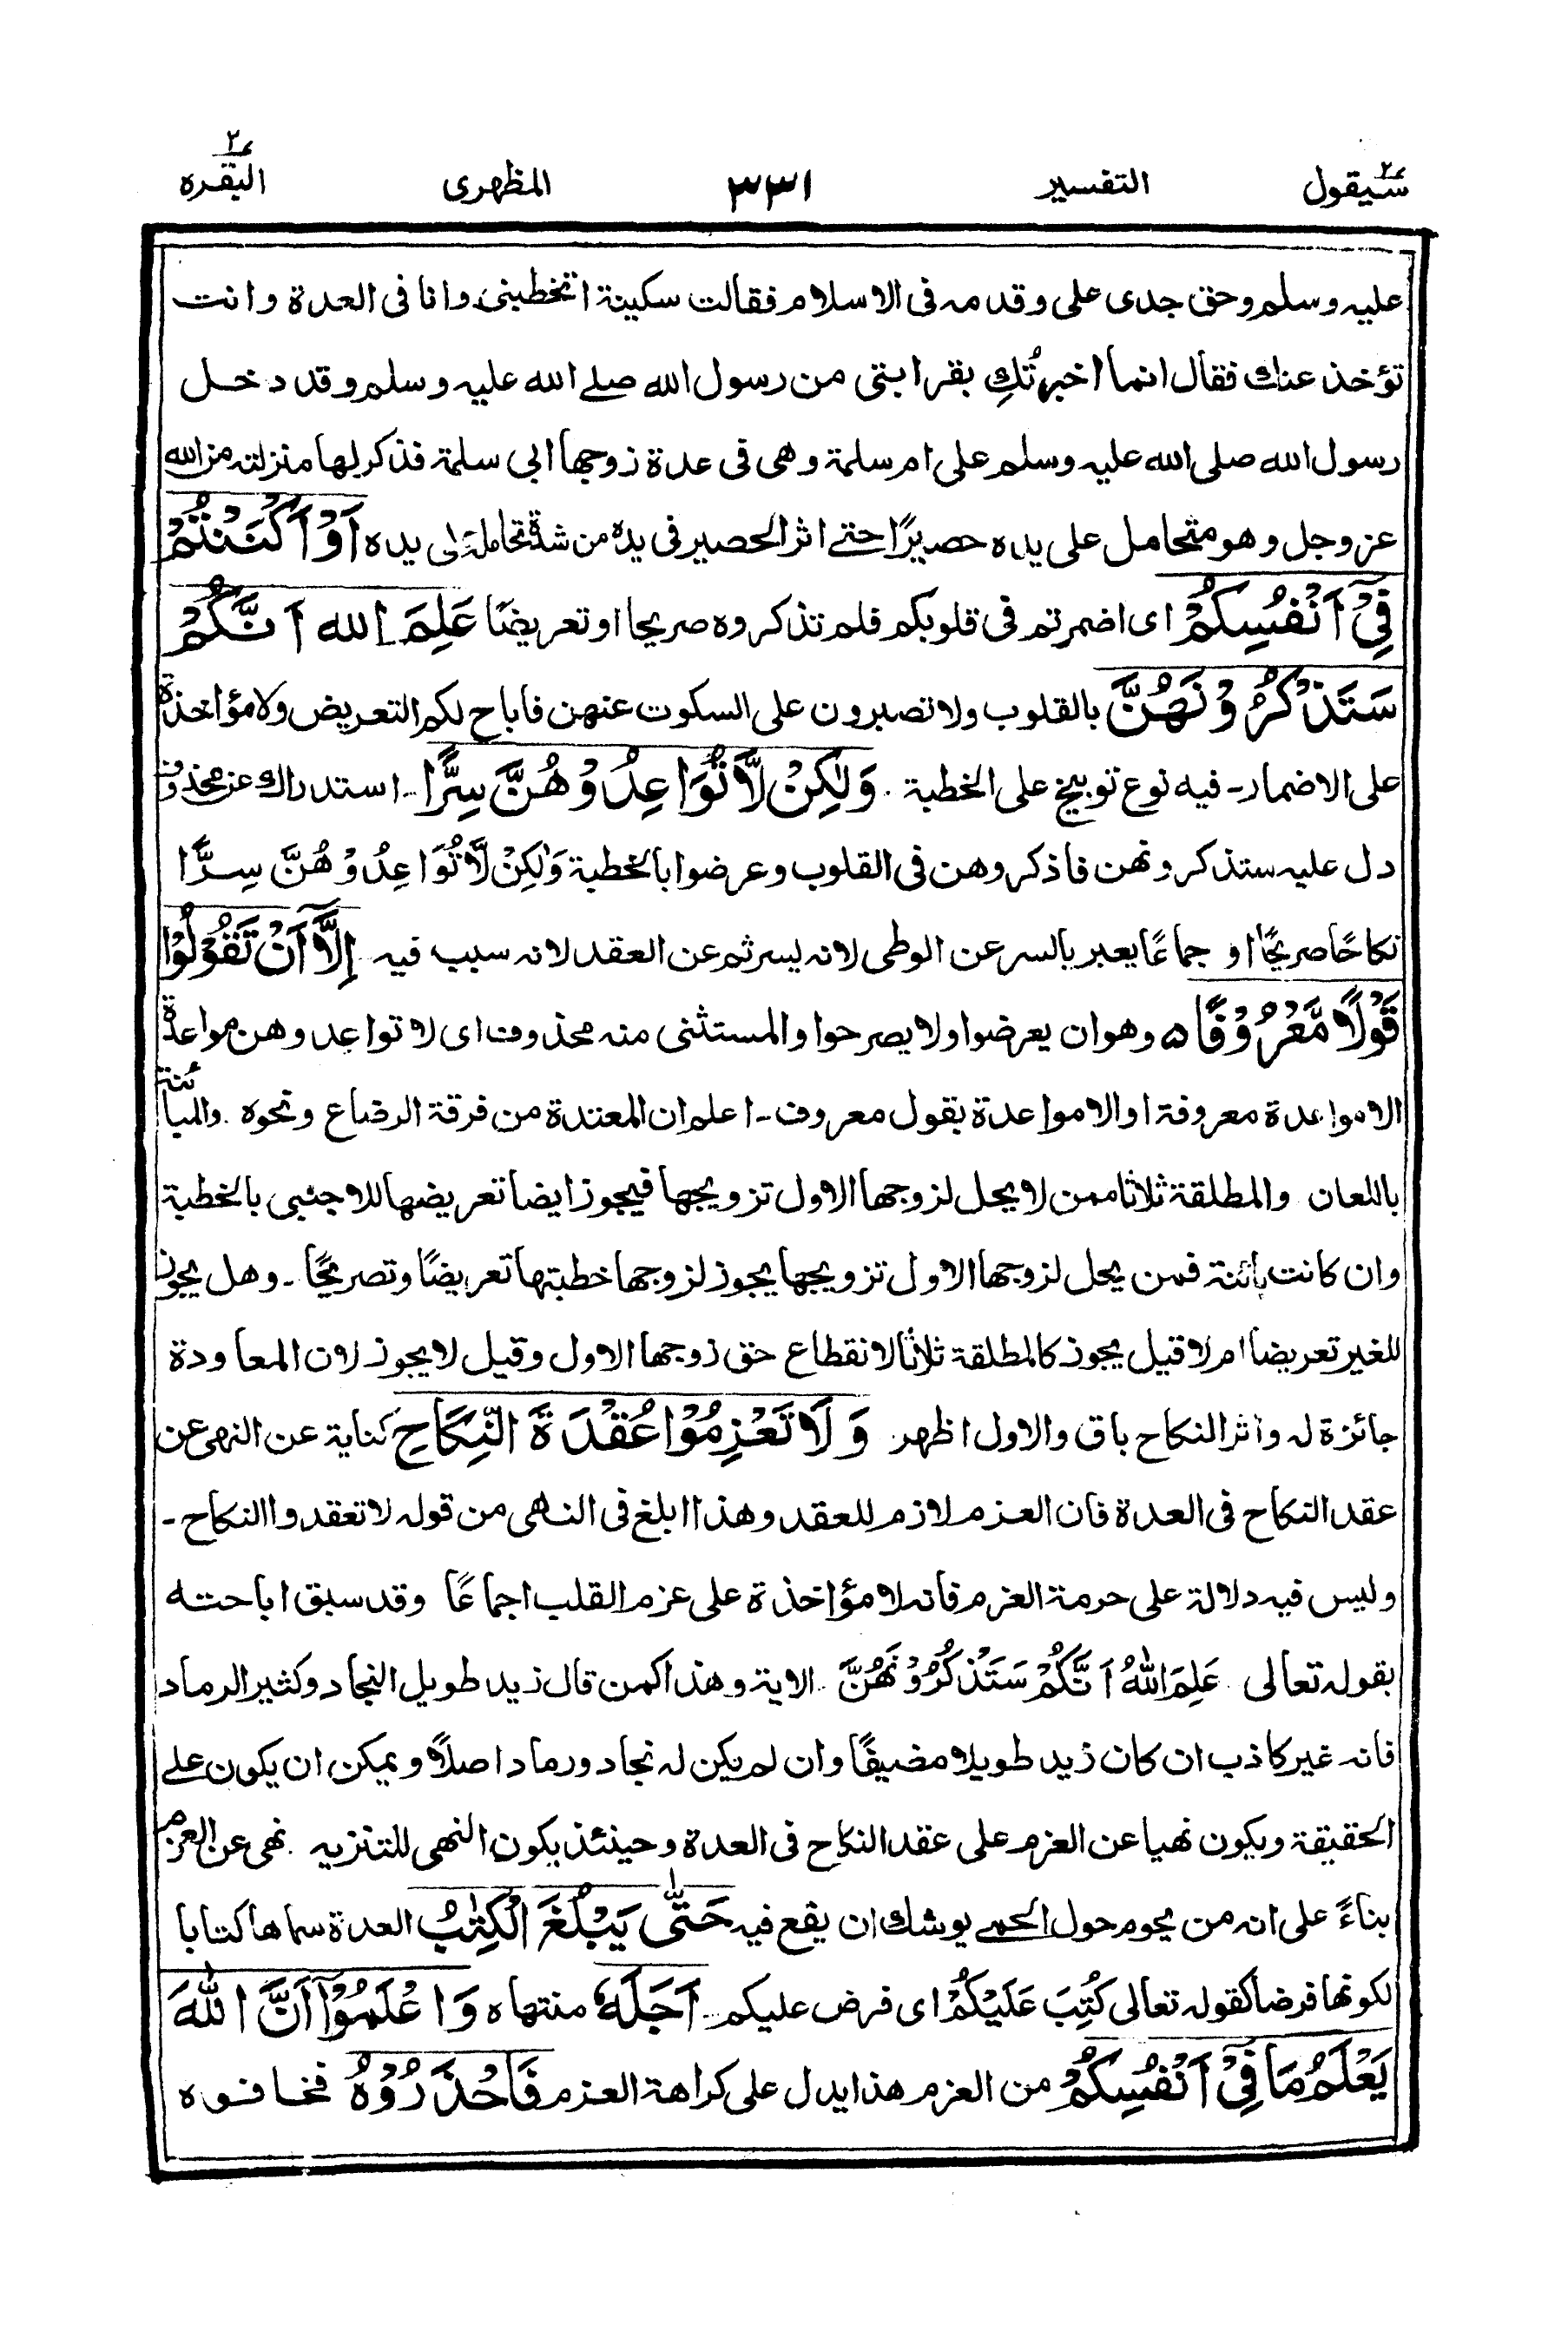 سيقول ٢ التفسير ٣٣١ المظهرى البقره ٢
عليه وسلم وحق جدى على وقدمه فى الاسلام فقالت سكينة اتخطبنى وانا فى العدة وانت
تؤخذ عنك فقال انما اخبرتُكِ بقرابتى من رسول الله صلى الله عليه وسلم وقد دخل
رسول الله صلى الله عليه وسلم على ام سلمة وهى فى عدة زوجها ابى سلمة فذكر لها منزلته من الله
عز وجل وهو متحامل على يده حصيرًا حتے اثر الحصير فى يده من شدة تحامله على يده اَوْ اَكْنَنْتُمْ
فِىْٓ اَنْفُسِكُمْ اى اضمرتم فى قلوبكم فلم تذكروه صريحا او تعريضًا عَلِمَ الله اَنَّكُمْ
سَتَذْكُرُوْنَهُنَّ بالقلوب ولا تصبرون على السكوت عنهن فاباح لكم التعريض ولا مؤاخذة
على الاضمار- فيه نوع توبيخ على الخطبة . وَلٰكِنْ لَّا تُوَاعِدُوْهُنَّ سِرًّا - استدراك عن محذوف
دل عليه ستذكرونهن فاذكروهن فى القلوب وعرضوا بالخطبة وَلٰكِنْ لَّا تُوَاعِدُوْهُنَّ سِرًّا
نكاحًا صريحًا او جماعًا يعبر بالسر عن الوطى لانه يسر ثم عن العقد لانه سبب فيه اِلَّآ اَنْ تَقُوْلُوْا
قَوْلًا مَّعْرُوْفًا ە وهو ان يعرضوا ولا يصرحوا والمستثنى منه محذوف اى لا تواعدوهن مواعدة
الا مواعدة معروفة او الا مواعدة بقول معروف - اعلم ان المعتدة من فرقة الرضاع ونحوه . والمبائنة
باللعان والمطلقة ثلاثا ممن لا يحل لزوجها الاول تزويجها فيجوز ايضا تعريضها للاجنبى بالخطبة
وان كانت بائنة فمن يحل لزوجها الاول تزويجها يجوز لزوجها خطبتها تعريضًا وتصريحًا - وهل يجوز
للغير تعريضا ام لا قيل يجوز كالمطلقة ثلاثًا لانقطاع حق زوجها الاول وقيل لا يجوز لان المعاودة
جائزة له واثر النكاح باق والاول اظهر . وَلَا تَعْزِمُوْا عُقْدَةَ النِّكَاحِ كناية عن النهى عن
عقد النكاح فى العدة فان العزم لازم للعقد وهذا ابلغ فى النهى من قوله لا تعقدوا النكاح -
وليس فيه دلالة على حرمة العزم فانه لا مؤاخذة على عزم القلب اجماعًا وقد سبق اباحته
بقوله تعالى عَلِمَ اللّٰهُ اَنَّكُمْ سَتَذْكُرُوْنَهُنَّ الاية وهذا كمن قال زيد طويل النجاد وكثير الرماد
فانه غير كاذب ان كان زيد طويلا مضيفًا وان لم يكن له نجاد ورماد اصلًا ويمكن ان يكون علے
الحقيقة ويكون نهيا عن العزم على عقد النكاح فى العدة وحينئذ يكون النهى للتنزيه . نهى عن العزم
بناءً على انه من يحوم حول الحمے يوشك ان يقع فيه حَتّٰى يَبْلُغَ الْكِتٰبُ العدة سماها كتابا
لكونها فرضا كقوله تعالى كُتِبَ عَلَيْكُمْ اى فرض عليكم - اَجَلَهٗ منتهاه وَاعْلَمُوْٓا اَنَّ اللّٰهَ
يَعْلَمُ مَا فِىْٓ اَنْفُسِكُمْ من العزم هذا يدل على كراهة العزم فَاحْذَرُوْهُ فخافوه